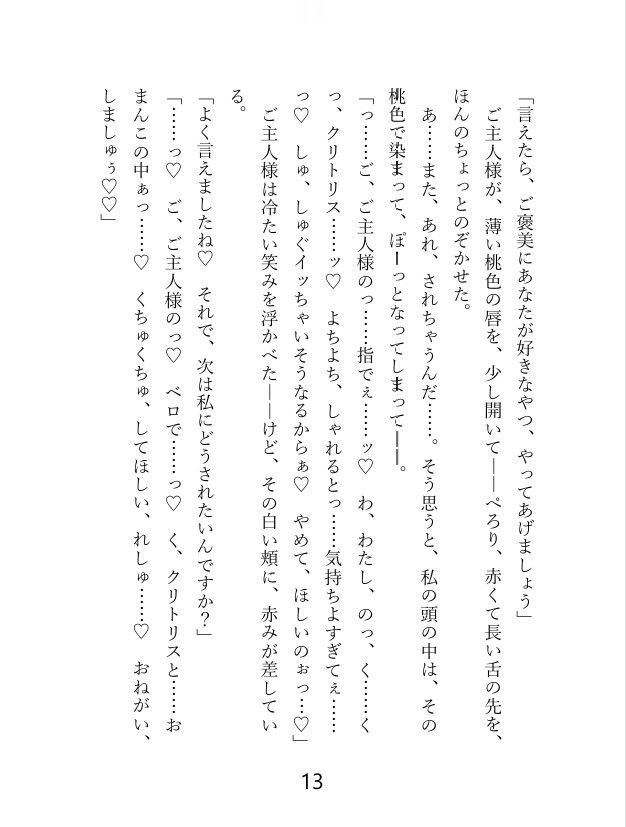 「言えたら、ご褒美にあなたが好きなやつ、やってあげましょう」
　ご主人様が、薄い桃色の唇を、少し開いて――ぺろり、赤くて長い舌の先を、
ほんのちょっとのぞかせた。
　あ……また、あれ、されちゃうんだ……。そう思うと、私の頭の中は、その
桃色で染まって、ぽーっとなってしまって――。
「っ……ご、ご主人様のっ……指でぇ……ッ♡　わ、わたし、のっ、く……く
っ、クリトリス……ッ♡　よちよち、しゃれるとっ……気持ちよすぎてぇ……
っ♡　しゅ、しゅぐイッちゃいそうなるからぁ♡　やめて、ほしいのぉっ…♡」
　ご主人様は冷たい笑みを浮かべた――けど、その白い頬に、赤みが差してい
る。
「よく言えましたね♡　それで、次は私にどうされたいんですか？」
「……っ♡　ご、ご主人様のっ♡　ベロで……っ♡　く、クリトリスと……お
まんこの中ぁっ……♡　くちゅくちゅ、してほしい、れしゅ……♡　おねがい、
しましゅぅ♡♡」
13